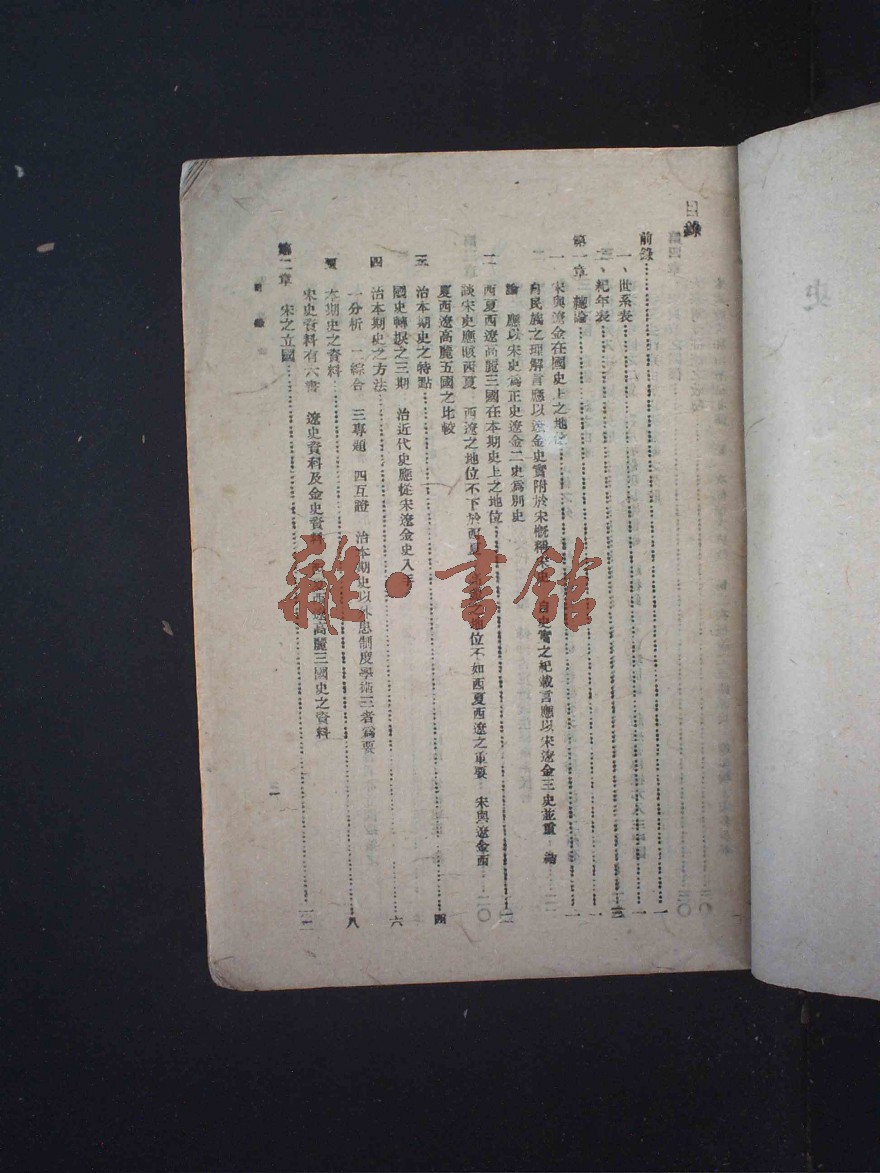 目錄
前錄……一
一、世系表……一
二、紀年表……三
第一章 總論……一
一 宋與遼金在國史上之地位……一
自民族之理解言應以遼金史實附於宋概稱宋史 自史實之紀載言應以宋遼金三史並重 結
論 應以宋史爲正史遼金二史爲別史
二 西夏西遼高麗三國在本期史上之地位……二
談宋史應賅西夏 西遼之地位不下於西夏 地位不如西夏西遼之重要 宋與遼金西
夏西遼高麗五國之比較
三 治本期史之特點……四
國史轉捩之三期 治近代史應從宋遼金史入手
四 治本期史之方法……六
一分析 二綜合 三專題 四互證 治本期史以外患制度學術三者爲要
本期史之資料……八
宋史資料有六書 遼史資料及金史資料 西遼高麗三國史之資料
第二章 宋之立國……一二
目錄
一
雜·書館
史